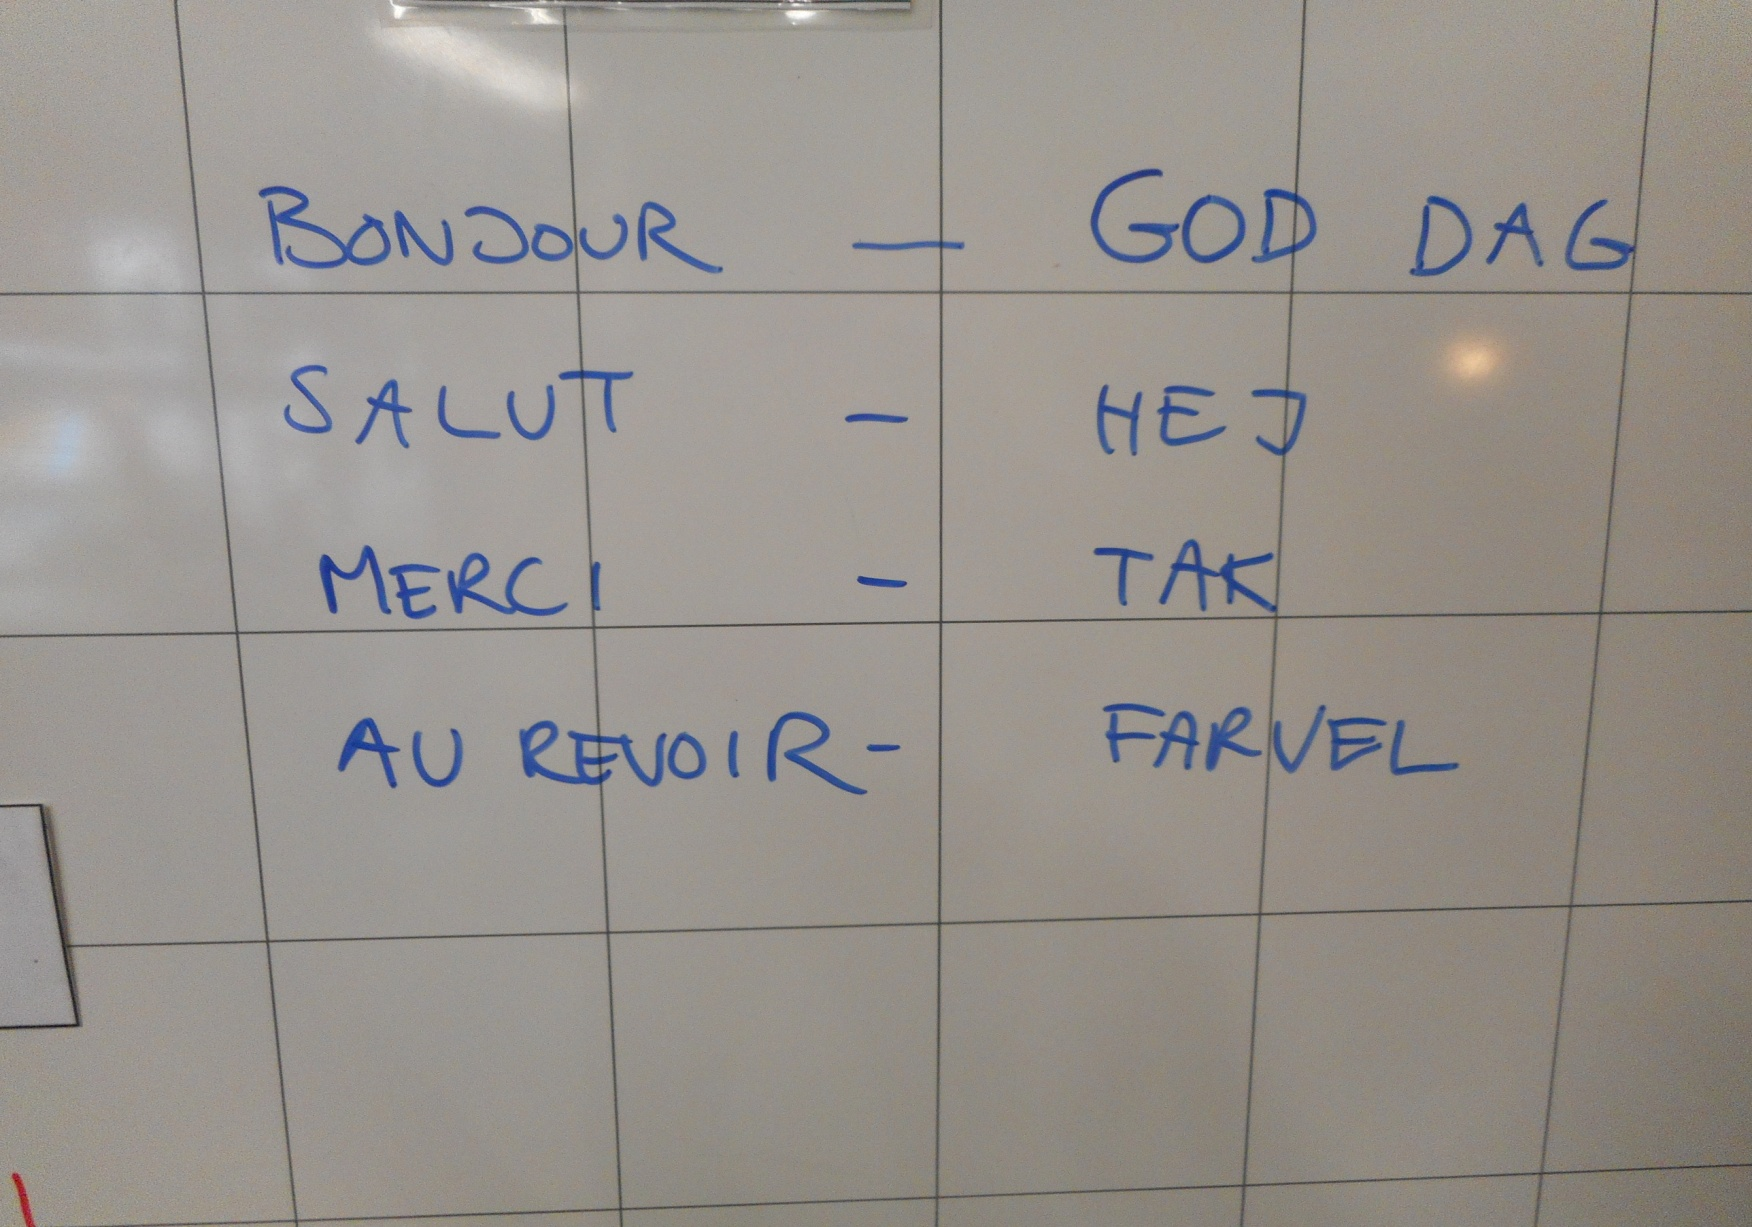 BONJOUR — GOD DAG
SALUT - HEJ
MERCI - TAK
AU REVOIR - FARVEL